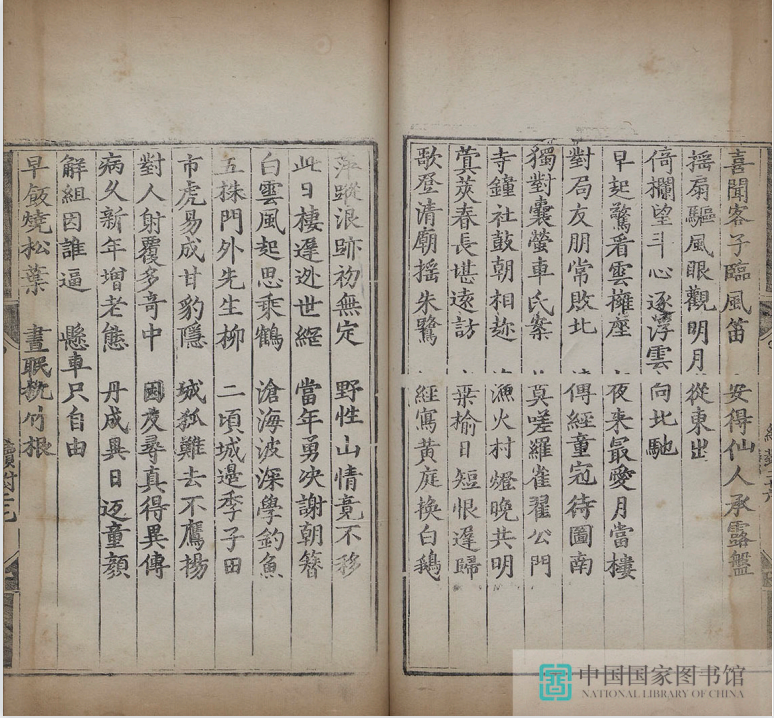 喜聞客子臨風笛　安得仙人承露盤
摇扇驅風眼觀明月從東出
倚欄望斗心逐浮雲向北馳
早起驚看雲擁座　夜来最愛月當樓
對局友朋常敗北　傳經童冠待圖南
獨對囊螢車氏案　莫嗟羅雀翟公門
寺鐘社鼓朝相越　漁火村燈晚共明
蓂荚春長堪遠訪　桒榆日短恨遅歸
歌登清廟摇朱鷺　經寫黄庭換白鵝
萍蹤浪跡初無定　野性山情竟不移
此日棲遲逃世網　當年勇决謝朝簪
白雲風起思乘鶴　滄海波深學釣魚
五株門外先生柳　二頃城邉季子田
市虎易成甘豹隱　城狐難去不鷹揚
對人射覆多竒中　因友尋真得異傳
病久新年增老態　丹成異日返童顔
解組因誰逼　懸車只自由
早飯燒松葉　晝眠枕竹根
中国国家图书馆
NATIONAL LIBRARY OF CHINA